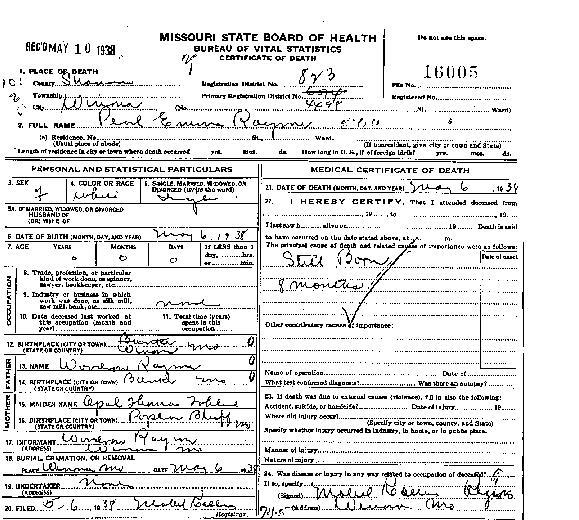 MISSOURI STATE BOARD OF HEALTH
BUREAU OF VITAL STATISTICS
CERTIFICATE OF DEATH
REC'D MAY 10 1938
Do not use this space.
1. PLACE OF DEATH
County Shannon
Township
City Winona
Registration District No. 823
Primary Registration District No.
File No. 16005
Registered No.
No. St. Ward)
2. FULL NAME Pearl Emma
(a) Residence, No. St. Ward.
(Usual place of abode) (If nonresident, give city or town and State)
Length of residence in city or town where death occurred yrs. mos. ds. How long in U. S., if of foreign birth? yrs. mos. ds.
PERSONAL AND STATISTICAL PARTICULARS
3. SEX f
4. COLOR OR RACE white
5. SINGLE, MARRIED, WIDOWED, OR DIVORCED (write the word) Single
5a. IF MARRIED, WIDOWED, OR DIVORCED
HUSBAND OF
(OR) WIFE OF
6. DATE OF BIRTH (MONTH, DAY, AND YEAR) May 6, 1938
7. AGE YEARS MONTHS DAYS If LESS than 1 day, hrs. or min.
0 0 0
OCCUPATION
8. Trade, profession, or particular kind of work done, as spinner, sawyer, bookkeeper, etc.
9. Industry or business in which work was done, as silk mill, saw mill, bank, etc. none
10. Date deceased last worked at this occupation (month and year)
11. Total time (years) spent in this occupation
12. BIRTHPLACE (CITY OR TOWN)
(STATE OR COUNTRY) Winona Mo
FATHER
13. NAME
14. BIRTHPLACE (CITY OR TOWN)
(STATE OR COUNTRY) Mo
MOTHER
15. MAIDEN NAME Opal
16. BIRTHPLACE (CITY OR TOWN) Poplar Bluff
(STATE OR COUNTRY) Mo
17. INFORMANT
(ADDRESS) Winona Mo
18. BURIAL, CREMATION, OR REMOVAL
PLACE Winona Mo DATE May 6 1938
19. UNDERTAKER none
(ADDRESS)
20. FILED 5-6 1938 Mabel
Registrar.
MEDICAL CERTIFICATE OF DEATH
21. DATE OF DEATH (MONTH, DAY, AND YEAR) May 6, 1938
22. I HEREBY CERTIFY, That I attended deceased from
19 , to 19
I last saw h alive on 19 Death is said
to have occurred on the date stated above, at m.
The principal cause of death and related causes of importance were as follows:
Date of onset
Still Born
8 months
Other contributory causes of importance:
Name of operation Date of
What test confirmed diagnosis? Was there an autopsy?
23. If death was due to external causes (violence), fill in also the following:
Accident, suicide, or homicide? Date of injury 19
Where did injury occur?
(Specify city or town, county, and State)
Specify whether injury occurred in industry, in home, or in public place.
Manner of injury
Nature of injury
24. Was disease or injury in any way related to occupation of deceased?
If so, specify
(Signed) Mabel
(Address) Winona Mo